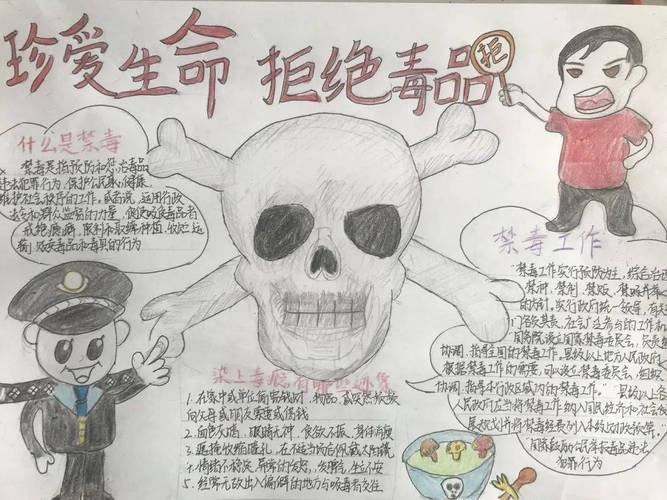 珍爱生命 拒绝毒品
拒
什么是禁毒
禁毒是指预防和惩治毒品
违法犯罪行为，保护公民身心健康，
维护社会秩序的工作。或者说，运用行政
法令和群众监督的力量，使吸食毒品者
戒绝瘾癖，限制和取缔种植，收纳，运
制，贩卖毒品和毒具的行为
禁毒工作
"禁毒工作实行预防为主，综合治理
禁种、禁制、禁贩、禁吸并举
的方针。实行政府统一领导，有关
门各负其责，社会广泛参与的工作机
国务院设立国家禁毒委员会，负责组
协调，指导全国的禁毒工作。县级以上地方人民政府
根据禁毒工作的需要，可以设立禁毒委员会，组织
协调，指导本行政区域内的禁毒工作。" 县级以上各
人民政府应当将禁毒工作纳入国民经济和社会
展规划并将禁毒经费列入本级财政预算。"
国家鼓励公民举报毒品违法
犯罪行为
染上毒瘾有哪些迹象
1. 在家中或单位偷窃钱财、物品，或突然频繁
向父母或朋友索要或借钱
2. 面色灰暗，眼睛无神，食欲不振，身体消瘦
3. 遮掩收缩瞳孔，在不适当场合佩戴太阳镜
4. 情绪不稳定，异常的发怒，发脾气，坐立不安
5. 经常无故出入偏僻的地方与吸毒者交往